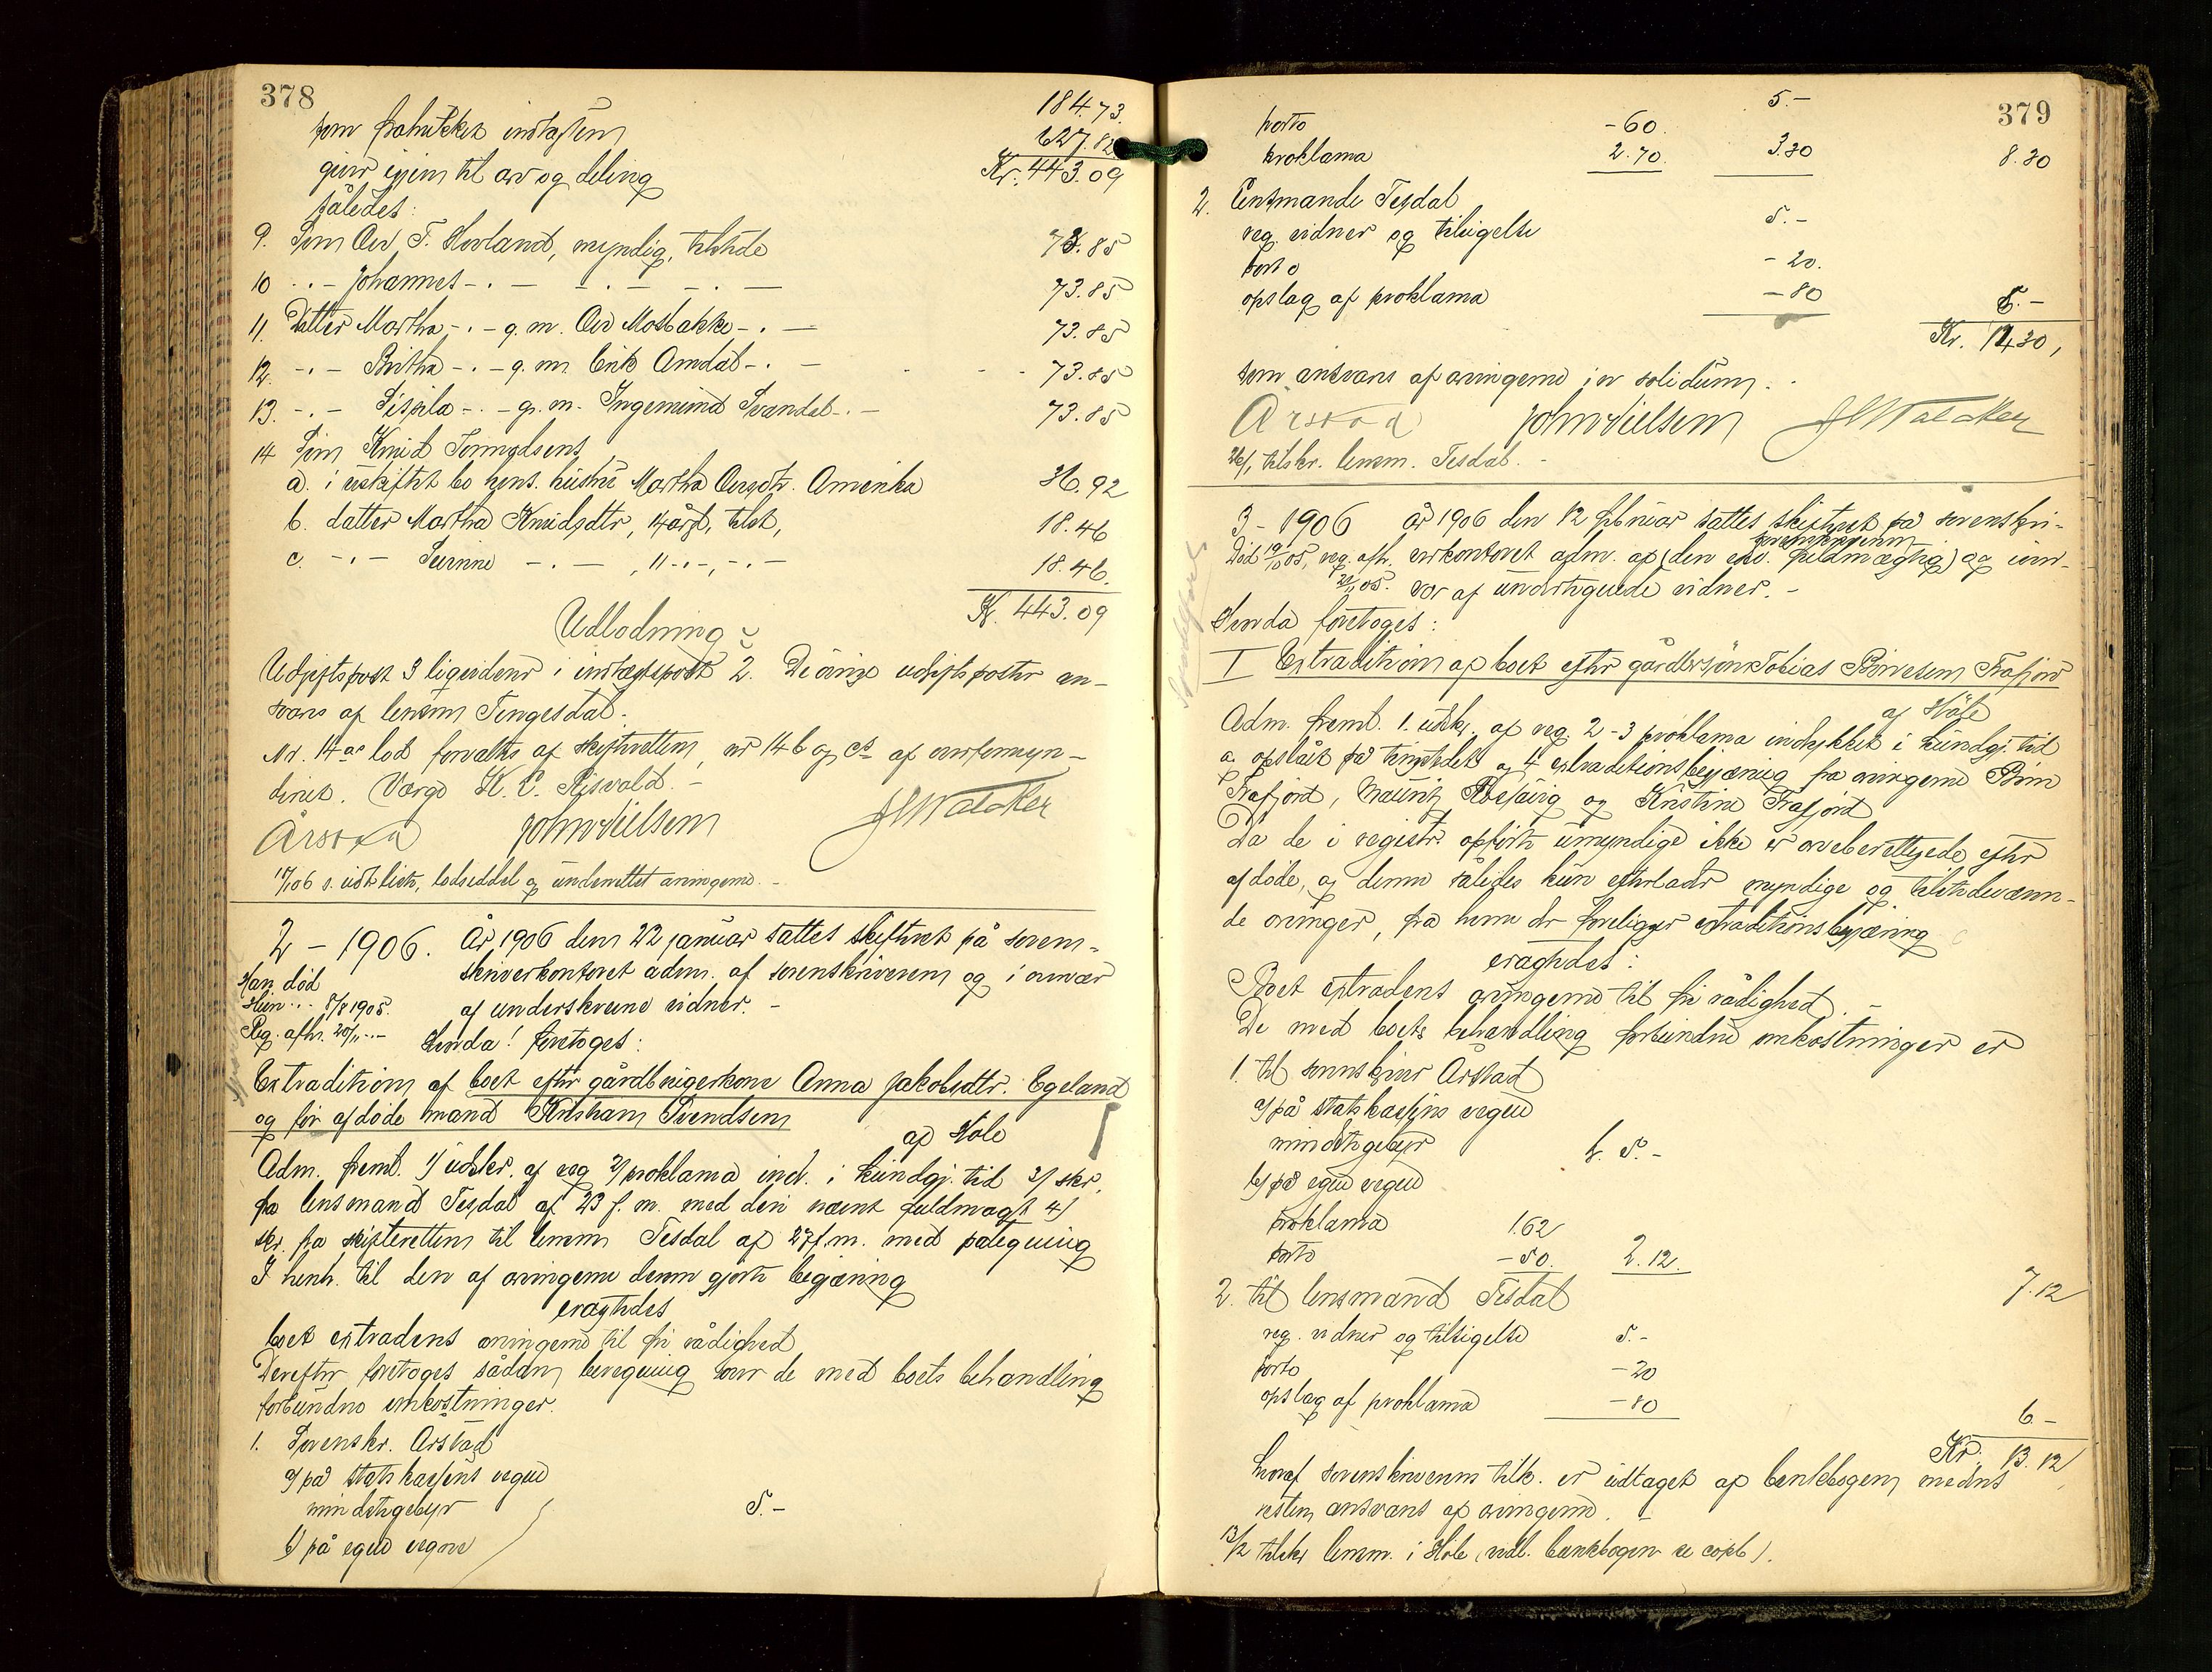 378
184.73.
som fratrukket indtægten 627.82
giver igjen til arv og deling Kr. 443.09
således:
9. Søn Osv. T. Hovland, myndig, tilstede 73.85
10 -.- Johannes -.- -.- -.- 73.85
11. Datter Martha -.- g. m. Osv. Mosbakke -.- 73.85
12. -.- Britha -.- g. m. Erik Amdal -.- 73.85
13. -.- Sispila -.- g. m. Ingemund Svendal -.- 73.85
14 Søn Knud
a. i uskiftet bo hens. hustru Martha Amerika 36.92
b. datter Martha Knudsdtr, 14 år, tilst, 18.46
c. -.- Serine -.- , 11 -.-, -.- 18.46.
Kr. 443.09
Udlodning
Udgiftspost 3 ligvideres i indtægtspost 2. De øvrige udgiftsposter an-
svares af lensm Tengesdal.
Nr. 14 a's lod forvaltes af skifteretten, nr 14 b og c's af overformyn-
deriet. Værge K. E. Riisvold. -
Årstad John Nielsen
17/1 06 s. udskr. liste, lodseddel og underrettet arvingerne. -
2 - 1906. År 1906 den 22 januar sattes skifteret på soren-
Han død skriverkontoret adm. af sorenskriveren og i overvær
Hun -.- 8/8 1905. af underskrevne vidner. -
Reg. afh. 20/11 -.- Hvorda! foretoges:
Extradition af boet efter gårdbrugerkone Anna Jakobsdtr. Egeland
og før afdøde mand Kristian Svendsen
af Høle
Adm. freml. 1/ udskr. af reg 2/ proklama ind. i kundgj. tid 3/ skr.
fra lensmand Tesdal af 23 f. m. med den nævnt fuldmagt 4/
skr. fra skifteretten til lensm Tesdal af 27 f. m. med påtegning
I henh. til den af arvingerne derom gjorte begjæring
eragtedes
boet extraderes arvingerne til fri rådighed
Derefter foretoges sådan beregning over de med boets behandling
forbundne omkostninger.
1. Sorenskr. Årstad
a/ på statskassens vegne
mindstegebyr 5.-
b) på egne vegne
379
5.-
porto -60.
proklama 2.70. 3.30 8.30
2. Lensmand Tesdal
reg. vidner og tilsigelse 5.-
porto -20.
opslag af proklama -80 6.-
Kr. 14.30,
som ansvares af arvingerne in solidum. -
Årstad John Nielsen
26/1 tilskr. lensm. Tesdal. -
3 - 1906 År 1906 den 12 februar sattes skifteret på sorenskri-
Død 19/10 05, reg. afh. verkontoret adm. af (den edsv. fuldmægtig) og over-
sorenskriveren
22/11 05. vær af undertegnede vidner. -
Hvorda foretoges:
I Extradition af boet efter gårdbrsøn Tobias Børresen Frafjord
af Høle
Adm. freml. 1. udskr. af reg. 2-3 proklama indrykket i kundgj. tid
og opslået på tingstedet og 4 extraditionsbegjæring fra arvingerne Børre
Frafjord, og Kristine Frafjord
Da de i registr. opførte umyndige ikke er arveberettigede efter
afdøde, og denne således kun efterlader myndige og tilstedeværen-
de arvinger, fra hvem der foreligger extraditionsbegjæring
eragtedes:
Boet extraderes arvingerne til fri rådighed. -
De med boets behandling forbundne omkostninger er
1. til sorenskriver Årstad
a/ på statskassens vegne
mindstegebyr kr. 5.-
b/ på egne vegne
proklama 1.62
porto -50. 2.12. 7.12
2. til lensmand Tesdal
reg. vidner og tilsigelse 5.-
porto -20
opslag af proklama -80 6.-
Kr. 13.12
hvoraf sorenskriverens tilk. er udtaget af bankbogen, medens
resten ansvares af arvingerne. -
13/2 tilskr. lensm. i Høle (vedl. bankbogen se copb).